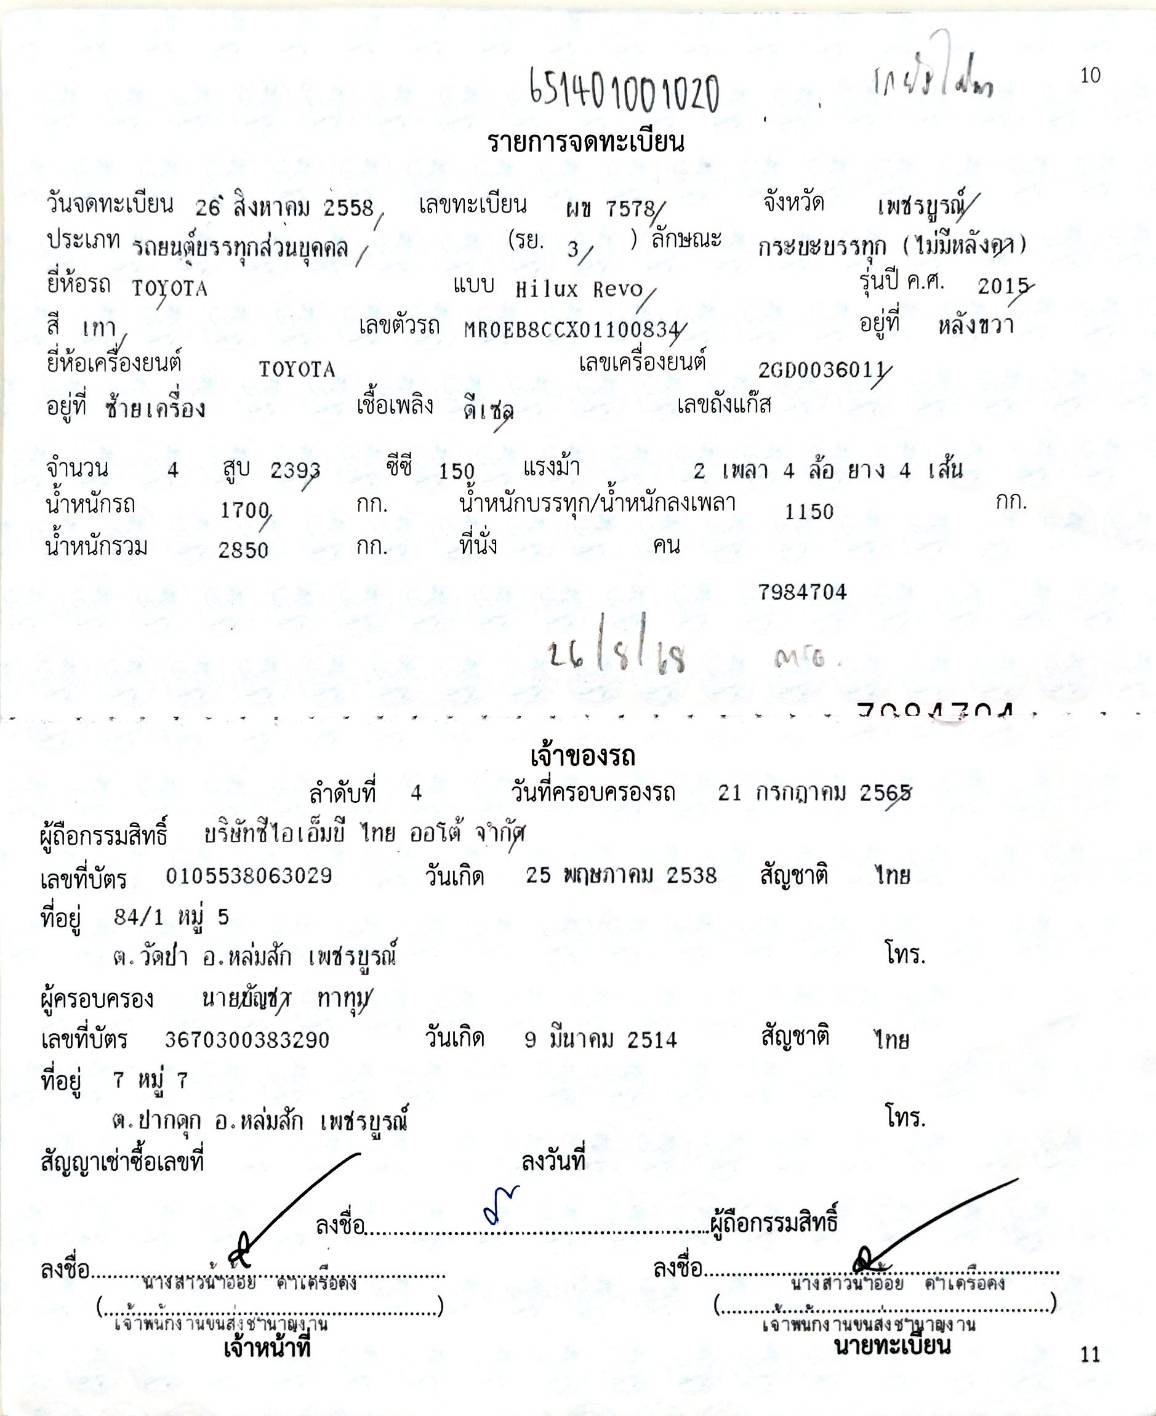 10
651401001020
รายการจดทะเบียน
วันจดทะเบียน 26 สิงหาคม 2558 เลขทะเบียน ผข 7578 จังหวัด เพชรบูรณ์
ประเภท รถยนต์บรรทุกส่วนบุคคล (รย. 3 ) ลักษณะ กระบะบรรทุก (ไม่มีหลังคา)
ยี่ห้อรถ TOYOTA แบบ Hilux Revo รุ่นปี ค.ศ. 2015
สี เทา เลขตัวรถ MR0EB8CCX01100834 อยู่ที่ หลังขวา
ยี่ห้อเครื่องยนต์ TOYOTA เลขเครื่องยนต์ 2GD0036011
อยู่ที่ ซ้ายเครื่อง เชื้อเพลิง ดีเซล เลขถังแก๊ส
จำนวน 4 สูบ 2393 ซีซี 150 แรงม้า 2 เพลา 4 ล้อ ยาง 4 เส้น
น้ำหนักรถ 1700 กก. น้ำหนักบรรทุก/น้ำหนักลงเพลา 1150 กก.
น้ำหนักรวม 2850 กก. ที่นั่ง คน
7984704
26/8/68
7984704
เจ้าของรถ
ลำดับที่ 4 วันที่ครอบครองรถ 21 กรกฎาคม 2565
ผู้ถือกรรมสิทธิ์ บริษัทซีไอเอ็มบี ไทย ออโต้ จำกัด
เลขที่บัตร 0105538063029 วันเกิด 25 พฤษภาคม 2538 สัญชาติ ไทย
ที่อยู่ 84/1 หมู่ 5
ต.วัดป่า อ.หล่มสัก เพชรบูรณ์ โทร.
ผู้ครอบครอง นายบัญชา ทาทุม
เลขที่บัตร 3670300383290 วันเกิด 9 มีนาคม 2514 สัญชาติ ไทย
ที่อยู่ 7 หมู่ 7
ต.ปากดุก อ.หล่มสัก เพชรบูรณ์ โทร.
สัญญาเช่าซื้อเลขที่ ลงวันที่
ลงชื่อ ผู้ถือกรรมสิทธิ์
ลงชื่อ ลงชื่อ
นางสาวน้ำอ้อย คำเครือคง นางสาวน้ำอ้อย คำเครือคง
(เจ้าพนักงานขนส่งชำนาญงาน) (เจ้าพนักงานขนส่งชำนาญงาน)
เจ้าหน้าที่ นายทะเบียน
11